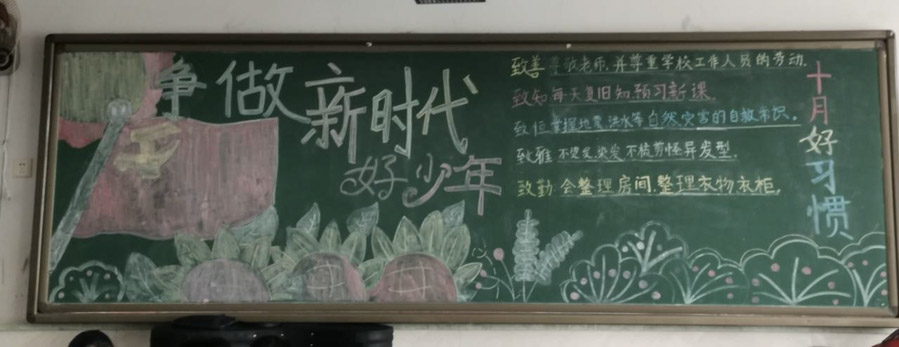 争做
新时代
好少年
致善 尊敬老师,并尊重学校工作人员的劳动.
致知 每天复旧知预习新课.
致恒 掌握地震 洪水等自然灾害的自救常识.
致雅 不烫发,染发 不被剪怪异发型.
致勤 会整理房间,整理衣物衣柜.
十月好习惯